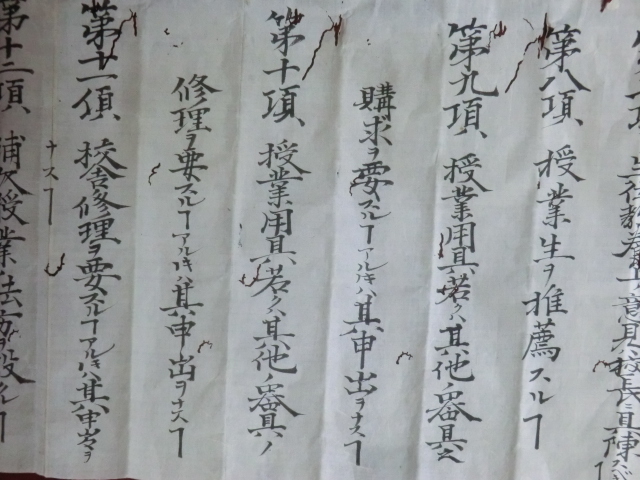 生徒教養上ノ意見ヲ校長ニ具陳スベ
第八項、授業生ヲ推薦スルヿ
第九項、授業用具若クハ其他ノ器具ヘ
購求ヲ要スルヿアルトキハ其申出ヲナスヿ
第十項、授業用具若クハ其他ノ器具ノ
修理ヲ要スルヿアルトキハ其申出ヲナスヿ
第十一項、校舎修理ヲ要スルヿアルトキハ其申出ヲ
ナスヿ
第十二項、補欠授業ノ法方ヲ設クルヿ